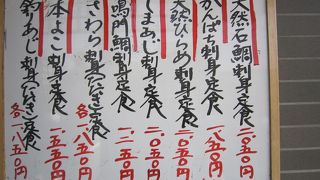 天然石鯛刺身定食 二〇五〇円
かんぱち刺身定食 一八五〇円
天然ひらめ刺身定食 二〇五〇円
しまあじ刺身定食 二〇五〇円
鳴門鯛刺身定食 二一五〇円
さわら刺身たたき定食 各一八五〇円
本よこ刺身定食 一五五〇円
釣りあじ刺身たたき定食 各一八五〇円